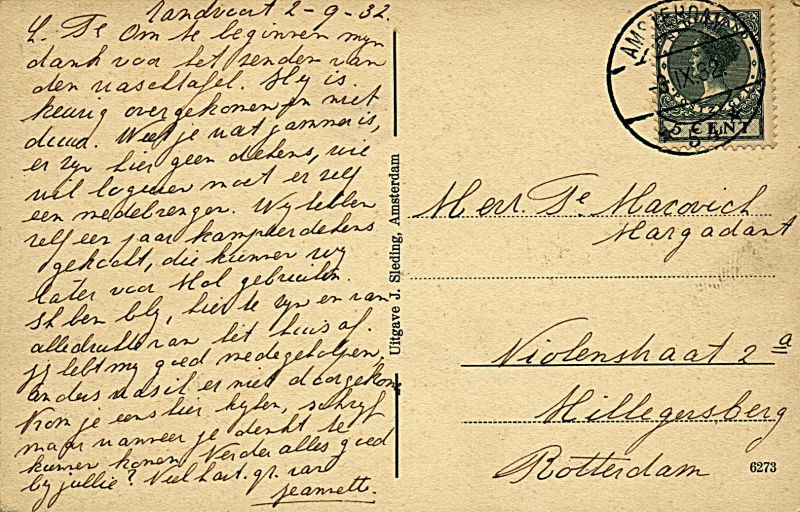 Zandvoort 2-9-32.
L. Te Om te beginnen mijn
dank voor het zenden van
den waschtafel. Hij is
keurig overgekomen en niet
duur. Weet je wat jammer is,
er zijn hier geen dekens, wie
wil logeren moet er zelf
een medebrengen. Wij hebben
zelf een paar kampeerdekens
gekocht, die kunnen wij
later voor Hol gebruiken.
Ik ben blij, hier te zijn en van
alle drukte van het huis af.
Jij hebt mij goed medegeholpen,
anders was ik er niet doorgekom
Kom je eens hier kijken, schrijf
maar wanneer je denkt te
kunnen komen Verder alles goed
bij jullie? Veel hart. gr. van
Jeannette.
Uitgave J. Sleding, Amsterdam
AMSTERDAM
IX.32
5 CENT
Mevr. Te Macovich
Margadant
Violenstraat 2a
Hillegersberg
Rotterdam
6273